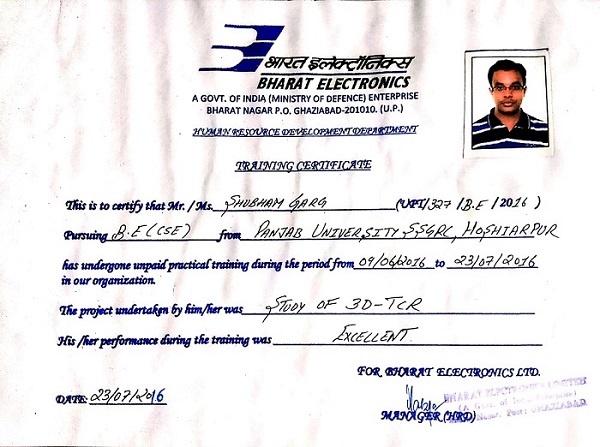 भारत इलेक्ट्रॉनिक्स
BHARAT ELECTRONICS
A GOVT. OF INDIA (MINISTRY OF DEFENCE) ENTERPRISE
BHARAT NAGAR P.O. GHAZIABAD-201010. (U.P.)
HUMAN RESOURCE DEVELOPMENT DEPARTMENT
TRAINING CERTIFICATE
This is to certify that Mr. / Ms. SHUBHAM GARG (UPT/327/B.E/2016)
Pursuing B.E (CSE) from PANJAB UNIVERSITY SSGRC, HOSHIARPUR
has undergone unpaid practical training during the period from 09/06/2016 to 23/07/2016
in our organization.
The project undertaken by him/her was STUDY OF 3D-TCR
His /her performance during the training was EXCELLENT.
FOR BHARAT ELECTRONICS LTD.
DATE: 23/07/2016
MANAGER (HRD)
BHARAT ELECTRONICS LIMITED
(A Govt. of
GHAZIABAD